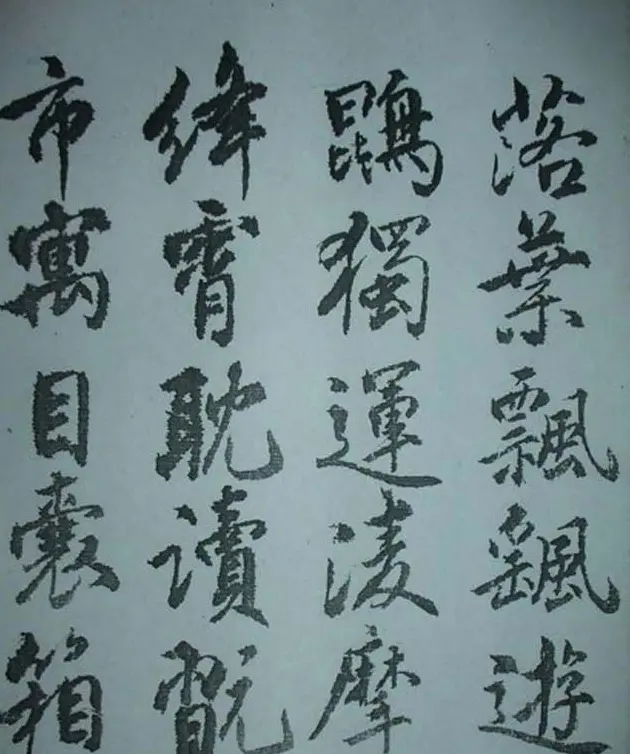 落葉飄颻遊
鵾獨運淩摩
絳霄耽讀翫
市寓目囊箱